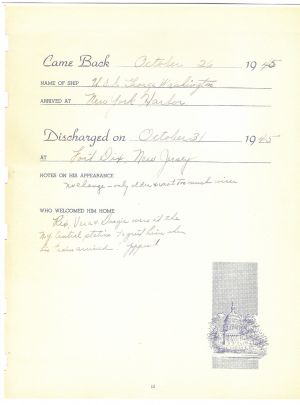 Came Back October 26 1945
NAME OF SHIP U.S.S. George Washington
ARRIVED AT New York Harbor
Discharged on October 31 1945
AT Fort Dix, New Jersey
NOTES ON HIS APPEARANCE
No change - only older & not too much wiser
WHO WELCOMED HIM HOME
were at the
N.Y. Central station to greet him when
his train arrived.